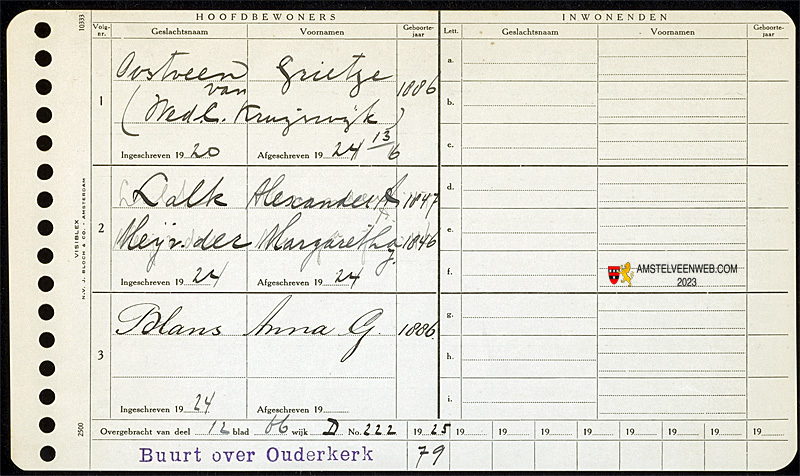 HOOFDBEWONERS
INWONENDEN
10333
Volg-nr. Geslachtsnaam Voornamen Geboorte-jaar
Lett. Geslachtsnaam Voornamen Geboorte-jaar
1
Oostveen Grietje 1886
van
(Wed. L. Kruijswijk)
Ingeschreven 1920 Afgeschreven 1924 13/6
2
Lalk Alexander A 1847
Meij v. der Margaretha 1846
Ingeschreven 1924 Afgeschreven 1924
3
Blans Anna G. 1886
Ingeschreven 1924 Afgeschreven 19
a.
b.
c.
d.
e.
f.
g.
h.
i.
AMSTELVEENWEB.COM
2023
VISIBLEX
N.V. J. BLOCH & CO. - AMSTERDAM
2500
Overgebracht van deel 12 blad 66 wijk D No. 222 1925 19 19 19 19 19 19 19
Buurt over Ouderkerk 79